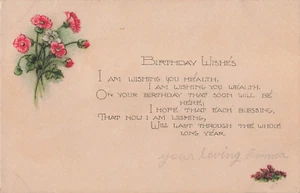 BIRTHDAY WISHES
I AM WISHING YOU HEALTH,
I AM WISHING YOU WEALTH.
ON YOUR BIRTHDAY THAT SOON WILL BE
HERE;
I HOPE THAT EACH BLESSING,
THAT NOW I AM WISHING,
WILL LAST THROUGH THE WHOLE
LONG YEAR.
your loving